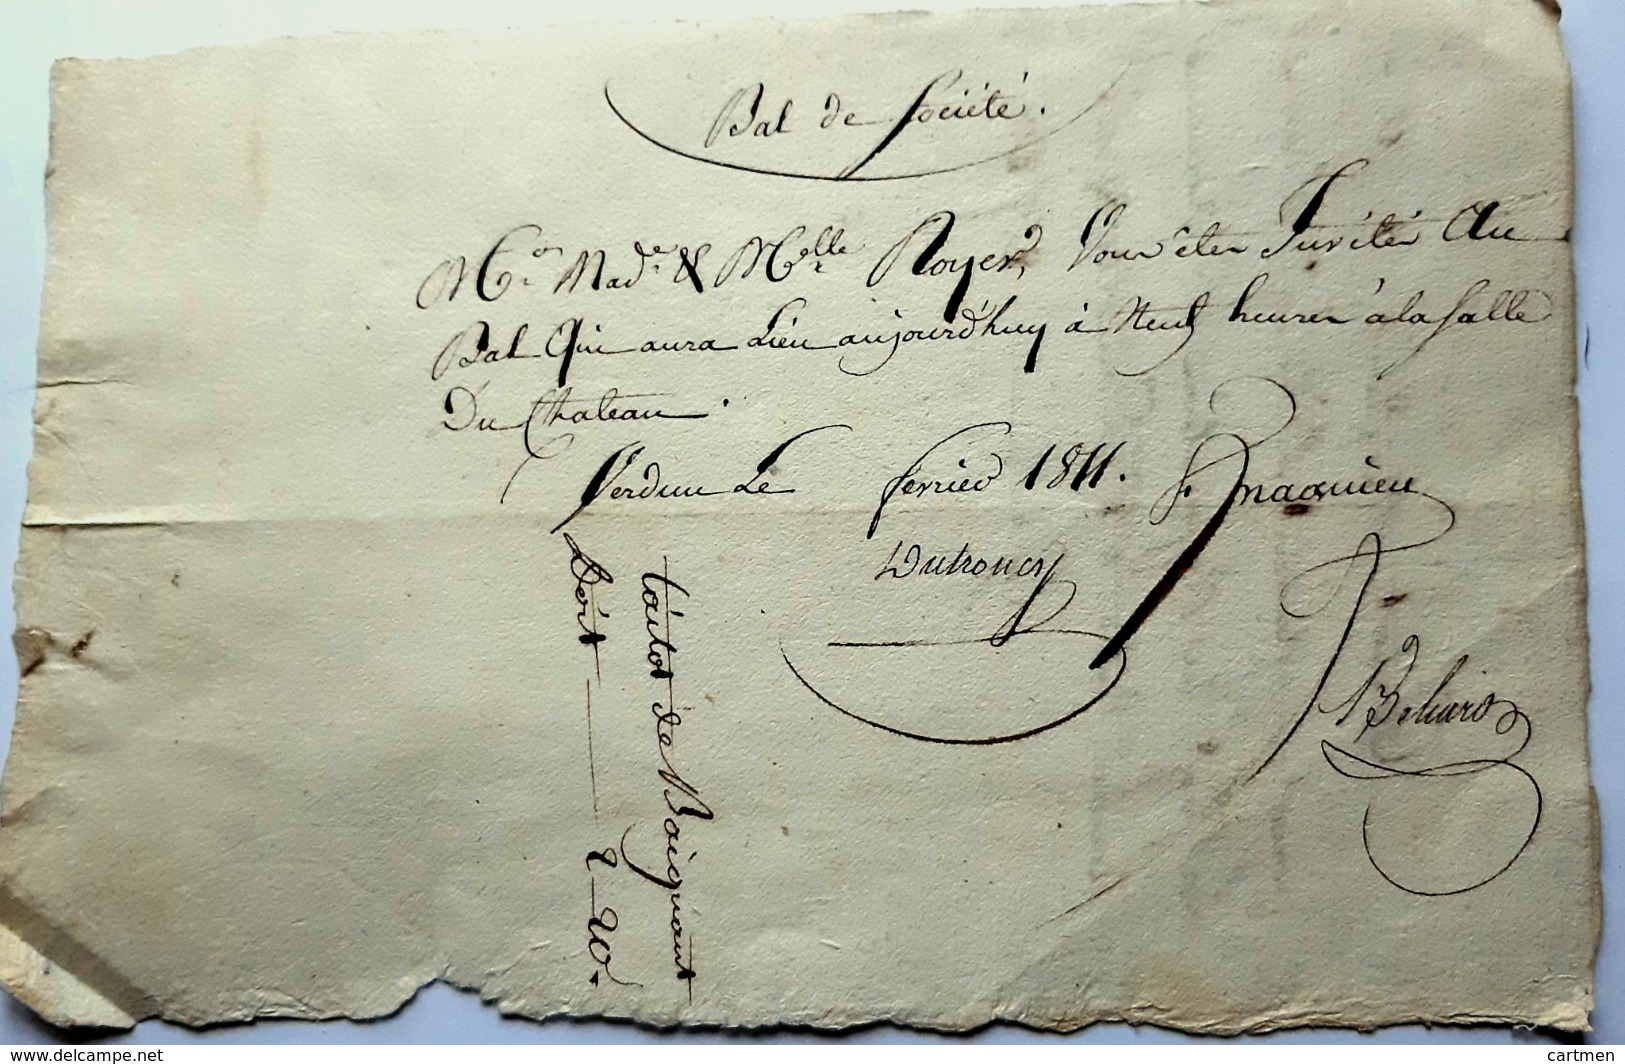 Bal de Société.
Mr. Made. & Melle Royer, Vous êtes Invités Au
Bal Qui aura Lieu aujourd'huy à Neuf heures à la Salle
Du Chateau.
Verdun Le fevrier 1811.
Dutroncy
de Baignant
Doit 2-20.
www.delcampe.net
cartmen